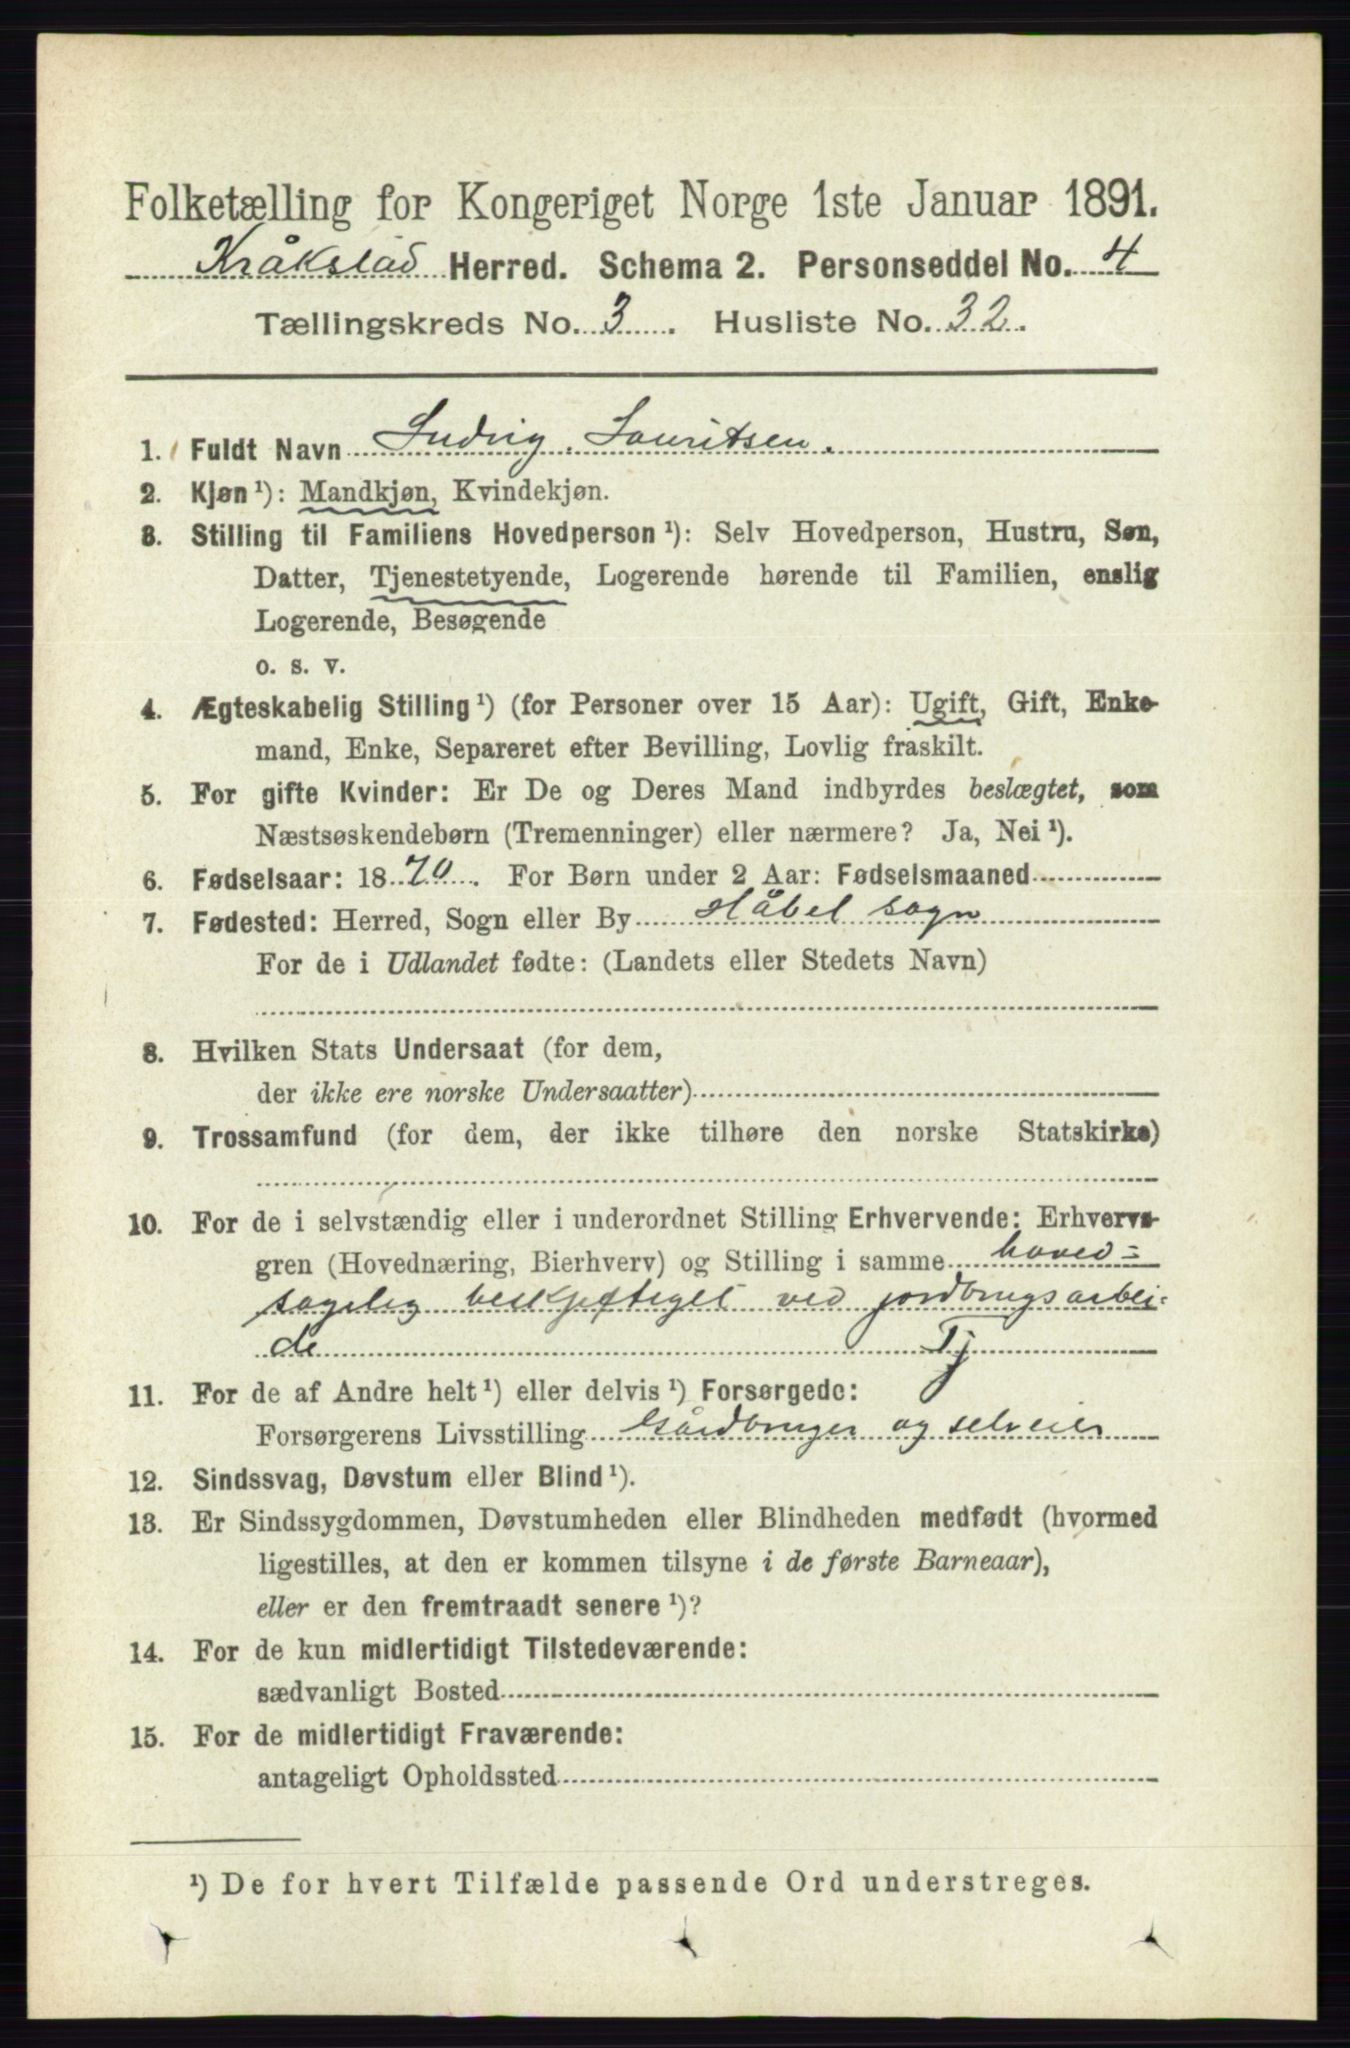 Folketælling for Kongeriget Norge 1ste Januar 1891.
Kråkstad Herred. Schema 2. Personseddel No. 4
Tællingskreds No. 3. Husliste No. 32.
1. Fuldt Navn Ludvig Lauritsen.
2. Kjøn ¹): Mandkjøn, Kvindekjøn.
3. Stilling til Familiens Hovedperson ¹): Selv Hovedperson, Hustru, Søn,
Datter, Tjenestetyende, Logerende hørende til Familien, enslig
Logerende, Besøgende
o. s. v.
4. Ægteskabelig Stilling ¹) (for Personer over 15 Aar): Ugift, Gift, Enke-
mand, Enke, Separeret efter Bevilling, Lovlig fraskilt.
5. For gifte Kvinder: Er De og Deres Mand indbyrdes beslægtet, som
Næstsøskendebørn (Tremenninger) eller nærmere? Ja, Nei ¹).
6. Fødselsaar: 1870. For Børn under 2 Aar: Fødselsmaaned
7. Fødested: Herred, Sogn eller By Håbel sogn
For de i Udlandet fødte: (Landets eller Stedets Navn)
8. Hvilken Stats Undersaat (for dem,
der ikke ere norske Undersaatter)
9. Trossamfund (for dem, der ikke tilhøre den norske Statskirke)
10. For de i selvstændig eller i underordnet Stilling Erhvervende: Erhvervs-
gren (Hovednæring, Bierhverv) og Stilling i samme hoved=
sagelig beskjeftiget ved jordbrugsarbei=
de Tj
11. For de af Andre helt ¹) eller delvis ¹) Forsørgede:
Forsørgerens Livsstilling Gårdbruger og selveier
12. Sindssvag, Døvstum eller Blind ¹).
13. Er Sindssygdommen, Døvstumheden eller Blindheden medfødt (hvormed
ligestilles, at den er kommen tilsyne i de første Barneaar),
eller er den fremtraadt senere ¹)?
14. For de kun midlertidigt Tilstedeværende:
sædvanligt Bosted
15. For de midlertidigt Fraværende:
antageligt Opholdssted
¹) De for hvert Tilfælde passende Ord understreges.